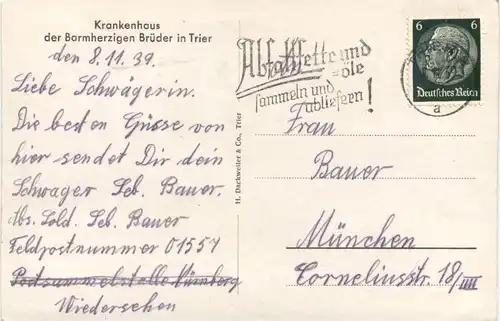 Krankenhaus
der Barmherzigen Brüder in Trier
den 8.11.39.
Liebe Schwägerin.
Die besten Grüsse von
hier sendet Dir dein
Schwager Seb. Bauer.
Abs. Sold. Seb. Bauer
Feldpostnummer 01557
Postsammelstelle Nürnberg
Wiedersehen
H. Dackweiler & Co., Trier
Altfette und
=öle
sammeln und
abliefern!
6 6
Deutsches Reich
a
Frau
Bauer
München
Corneliusstr. 18/IIII